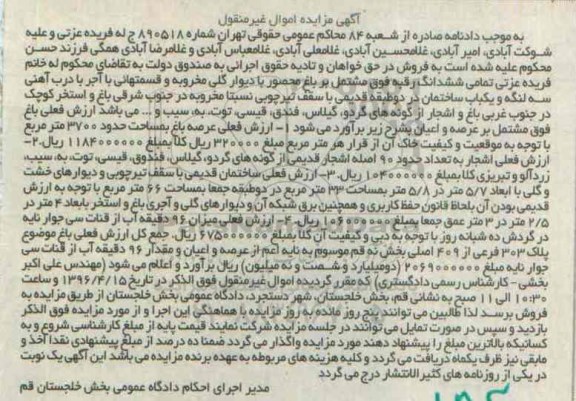 آگهی مزایده اموال غیرمنقول
به موجب دادنامه صادره از شعبه ۸۴ محاکم عمومی حقوقی تهران شماره ۸۹۰۵۱۸ ج له فریده عزتی و علیه
شوکت آبادی، امیر آبادی، غلامحسین آبادی، غلامعلی آبادی، غلامعباس آبادی و غلامرضا آبادی همگی فرزند حسن
محکوم علیه شده است به فروش در حق خواهان و تادیه حقوق اجرائی به صندوق دولت به تقاضای محکوم له خانم
فریده عزتی تمامی ششدانگ رقبه فوق مشتمل بر باغ محصور با دیوار گلی مخروبه و قسمتهائی با آجر با درب آهنی
سه لنگه و یکباب ساختمان در دوطبقه قدیمی با سقف تیرچوبی نسبتا مخروبه در جنوب شرقی باغ و استخر کوچک
در جنوب غربی باغ و اشجار از گونه های گردو، گیلاس، فندق، قیسی، توت، به، سیب و ... می باشد ارزش فعلی باغ
فوق مشتمل بر عرصه و اعیان بشرح زیر برآورد می شود ۱- ارزش فعلی عرصه باغ بمساحت حدود ۳۷۰۰ متر مربع
با توجه به موقعیت و کیفیت خاک آن از قرار هر متر مربع مبلغ ۳۲۰۰۰۰ ریال کلا بمبلغ ۱۱۸۴۰۰۰۰۰۰ ریال. ۲-
ارزش فعلی اشجار به تعداد حدود ۹۰ اصله اشجار قدیمی از گونه های گردو، گیلاس، فندوق، قیسی، توت، به، سیب،
زردآلو و تبریزی کلا بمبلغ ۱۰۴۰۰۰۰۰۰ ریال. ۳- ارزش فعلی ساختمان قدیمی با سقف تیرچوبی و دیوارهای خشت
و گلی با ابعاد ۵/۷ متر در ۵/۸ متر بمساحت ۳۳ متر مربع در دوطبقه جمعا بمساحت ۶۶ متر مربع با توجه به ارزش
قدیمی بودن آن بلحاظ قانون حفظ کاربری و همچنین برق شبکه آن و دیوارهای گلی و آجری باغ و استخر بابعاد ۴ متر در
۲/۵ متر در ۳ متر عمق جمعا بمبلغ ۱۰۶۰۰۰۰۰۰ ریال. ۴- ارزش فعلی میزان ۹۶ دقیقه آب از قنات سی جوار نایه
در گردش ده شبانه روز با توجه به دبی و کیفیت آن کلا بمبلغ ۶۷۵۰۰۰۰۰۰ ریال. جمع کل ارزش فعلی باغ موضوع
پلاک ۳۰۳ فرعی از ۴۰۹ اصلی بخش نه قم موسوم به نایه اعم از عرصه و اعیان و مقدار ۹۶ دقیقه آب از قنات سی
جوار نایه مبلغ ۲۰۶۹۰۰۰۰۰۰ (دومیلیارد و شصت و نه میلیون) ریال برآورد و اعلام می شود (مهندس علی اکبر
بخشی- کارشناس رسمی دادگستری) که مقرر گردیده اموال غیرمنقول فوق الذکر در تاریخ ۱۳۹۶/۴/۱۵ و ساعت
۱۰:۳۰ الی ۱۱ صبح به نشانی قم، بخش خلجستان، شهر دستجرد، دادگاه عمومی بخش خلجستان از طریق مزایده به
فروش برسد لذا طالبین می توانند پنج روز مانده به روز مزایده با هماهنگی این اجرا و از مورد مزایده فوق الذکر
بازدید و سپس در صورت تمایل می توانند در جلسه مزایده شرکت نمایند قیمت پایه از مبلغ کارشناسی شروع و به
کسانیکه بالاترین مبلغ را پیشنهاد دهند مورد مزایده واگذار می گردد ضمنا ده درصد از مبلغ پیشنهادی نقدا آخذ و
مابقی نیز ظرف یکماه دریافت می گردد و کلیه هزینه های مربوطه به عهده برنده مزایده می باشد این آگهی یک نوبت
در یکی از روزنامه های کثیرالانتشار درج می گردد
مدیر اجرای احکام دادگاه عمومی بخش خلجستان قم